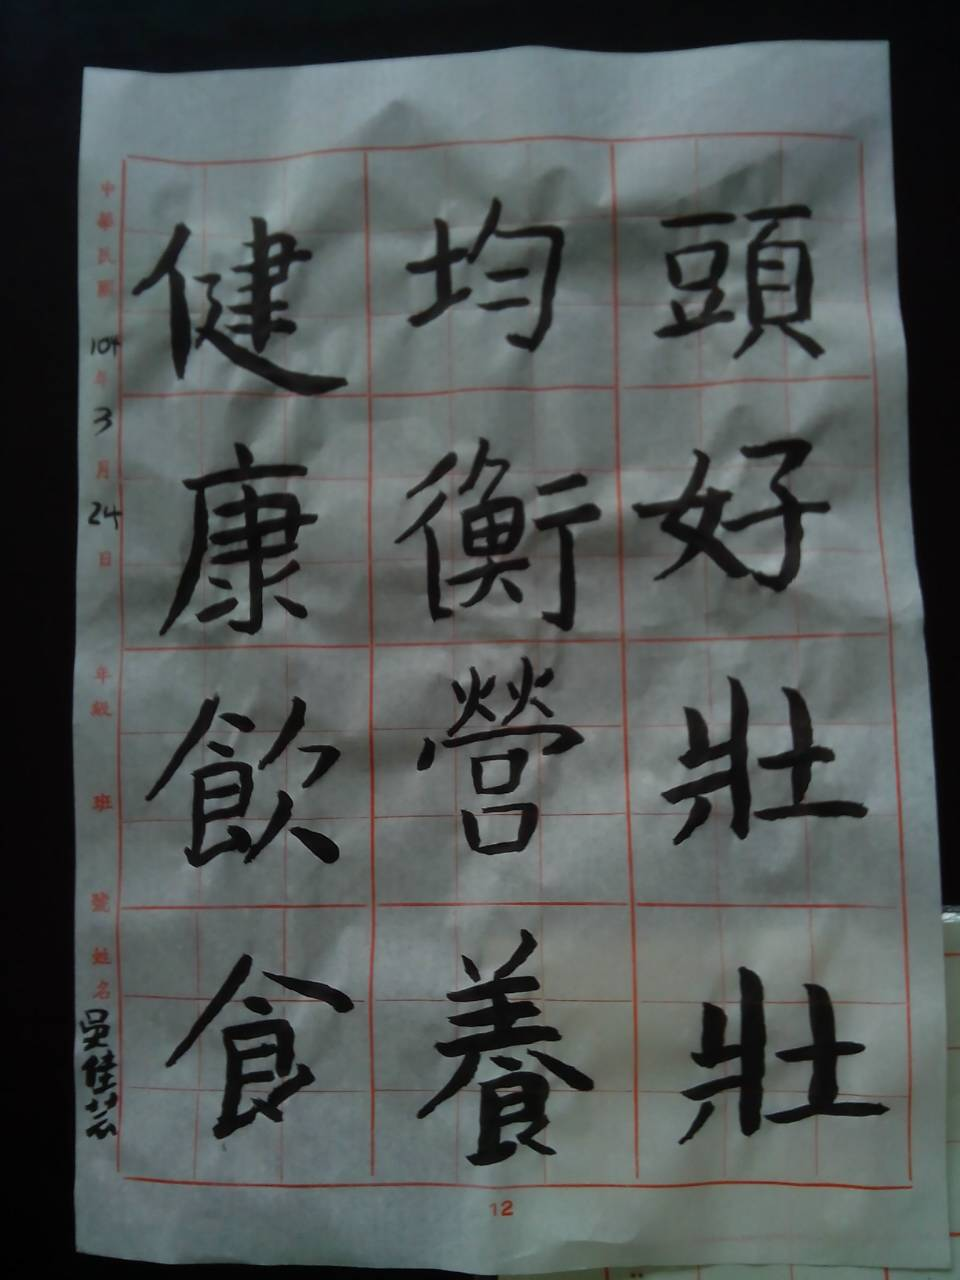 頭好壯壯
均衡營養
健康飲食
中華民國104年3月24日 年級 班 號 姓名 吳佳芸
12